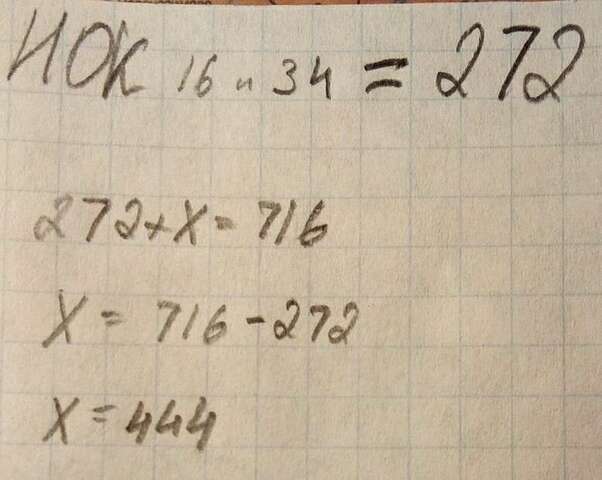 НОК 16 и 34 = 272
272+X=716
X = 716-272
X=444